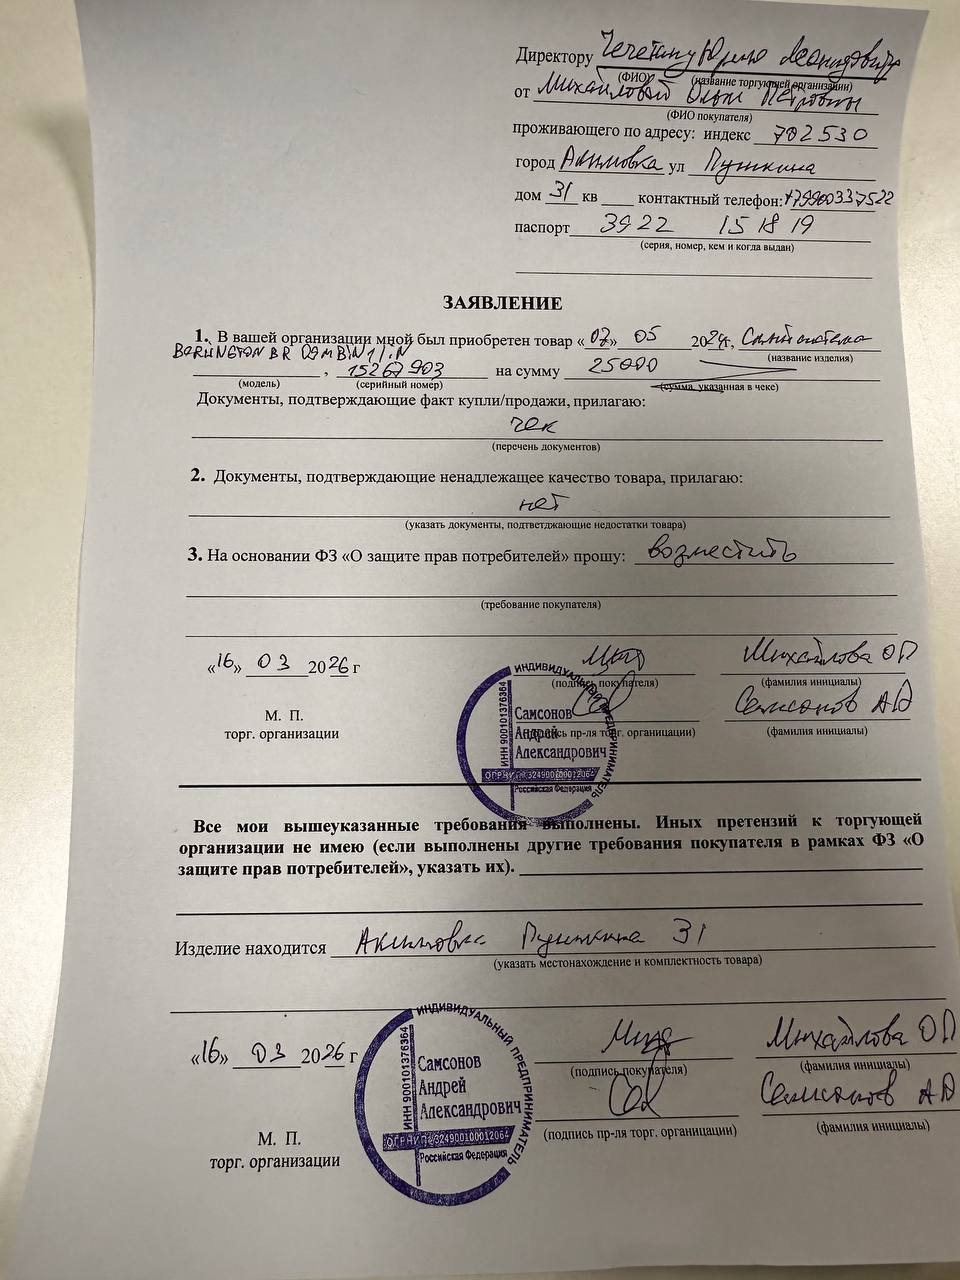 Директору Чечетину Юрию Леонидовичу
(ФИО) (название торгующей организации)
от Михайловой Ольги Петровны
(ФИО покупателя)
проживающего по адресу: индекс 702530
город Акимовка ул Пушкина
дом 31 кв ____ контактный телефон: +79900337522
паспорт 3922 151819
(серия, номер, кем и когда выдан)
ЗАЯВЛЕНИЕ
1. В вашей организации мной был приобретен товар «07» 05 2024г, Сплит система
(название изделия)
BR 09MBIN1/IN
, 15267903 на сумму 25000
(модель) (серийный номер) (сумма, указанная в чеке)
Документы, подтверждающие факт купли/продажи, прилагаю:
чек
(перечень документов)
2. Документы, подтверждающие ненадлежащее качество товара, прилагаю:
нет
(указать документы, подтветджающие недостатки товара)
3. На основании ФЗ «О защите прав потребителей» прошу: возместить
(требование покупателя)
«16» 03 2026 г Михайлова ОП
(подпись покупателя) (фамилия инициалы)
Самсонов АА
М. П. (подпись пр-ля торг. организации) (фамилия инициалы)
торг. организации
ИНДИВИДУАЛЬНЫЙ ПРЕДПРИНИМАТЕЛЬ
ИНН 900101376364
Самсонов
Андрей
Александрович
ОГРНИП № 324900100012064
Российская Федерация
Все мои вышеуказанные требования выполнены. Иных претензий к торгующей
организации не имею (если выполнены другие требования покупателя в рамках ФЗ «О
защите прав потребителей», указать их).
Изделие находится Акимовка Пушкина 31
(указать местонахождение и комплектность товара)
«16» 03 2026 г Михайлова ОП
(подпись покупателя) (фамилия инициалы)
Самсонов АА
М. П. (подпись пр-ля торг. органицации) (фамилия инициалы)
торг. организации
ИНДИВИДУАЛЬНЫЙ ПРЕДПРИНИМАТЕЛЬ
ИНН 900101376364
Самсонов
Андрей
Александрович
ОГРНИП № 324900100012064
Российская Федерация